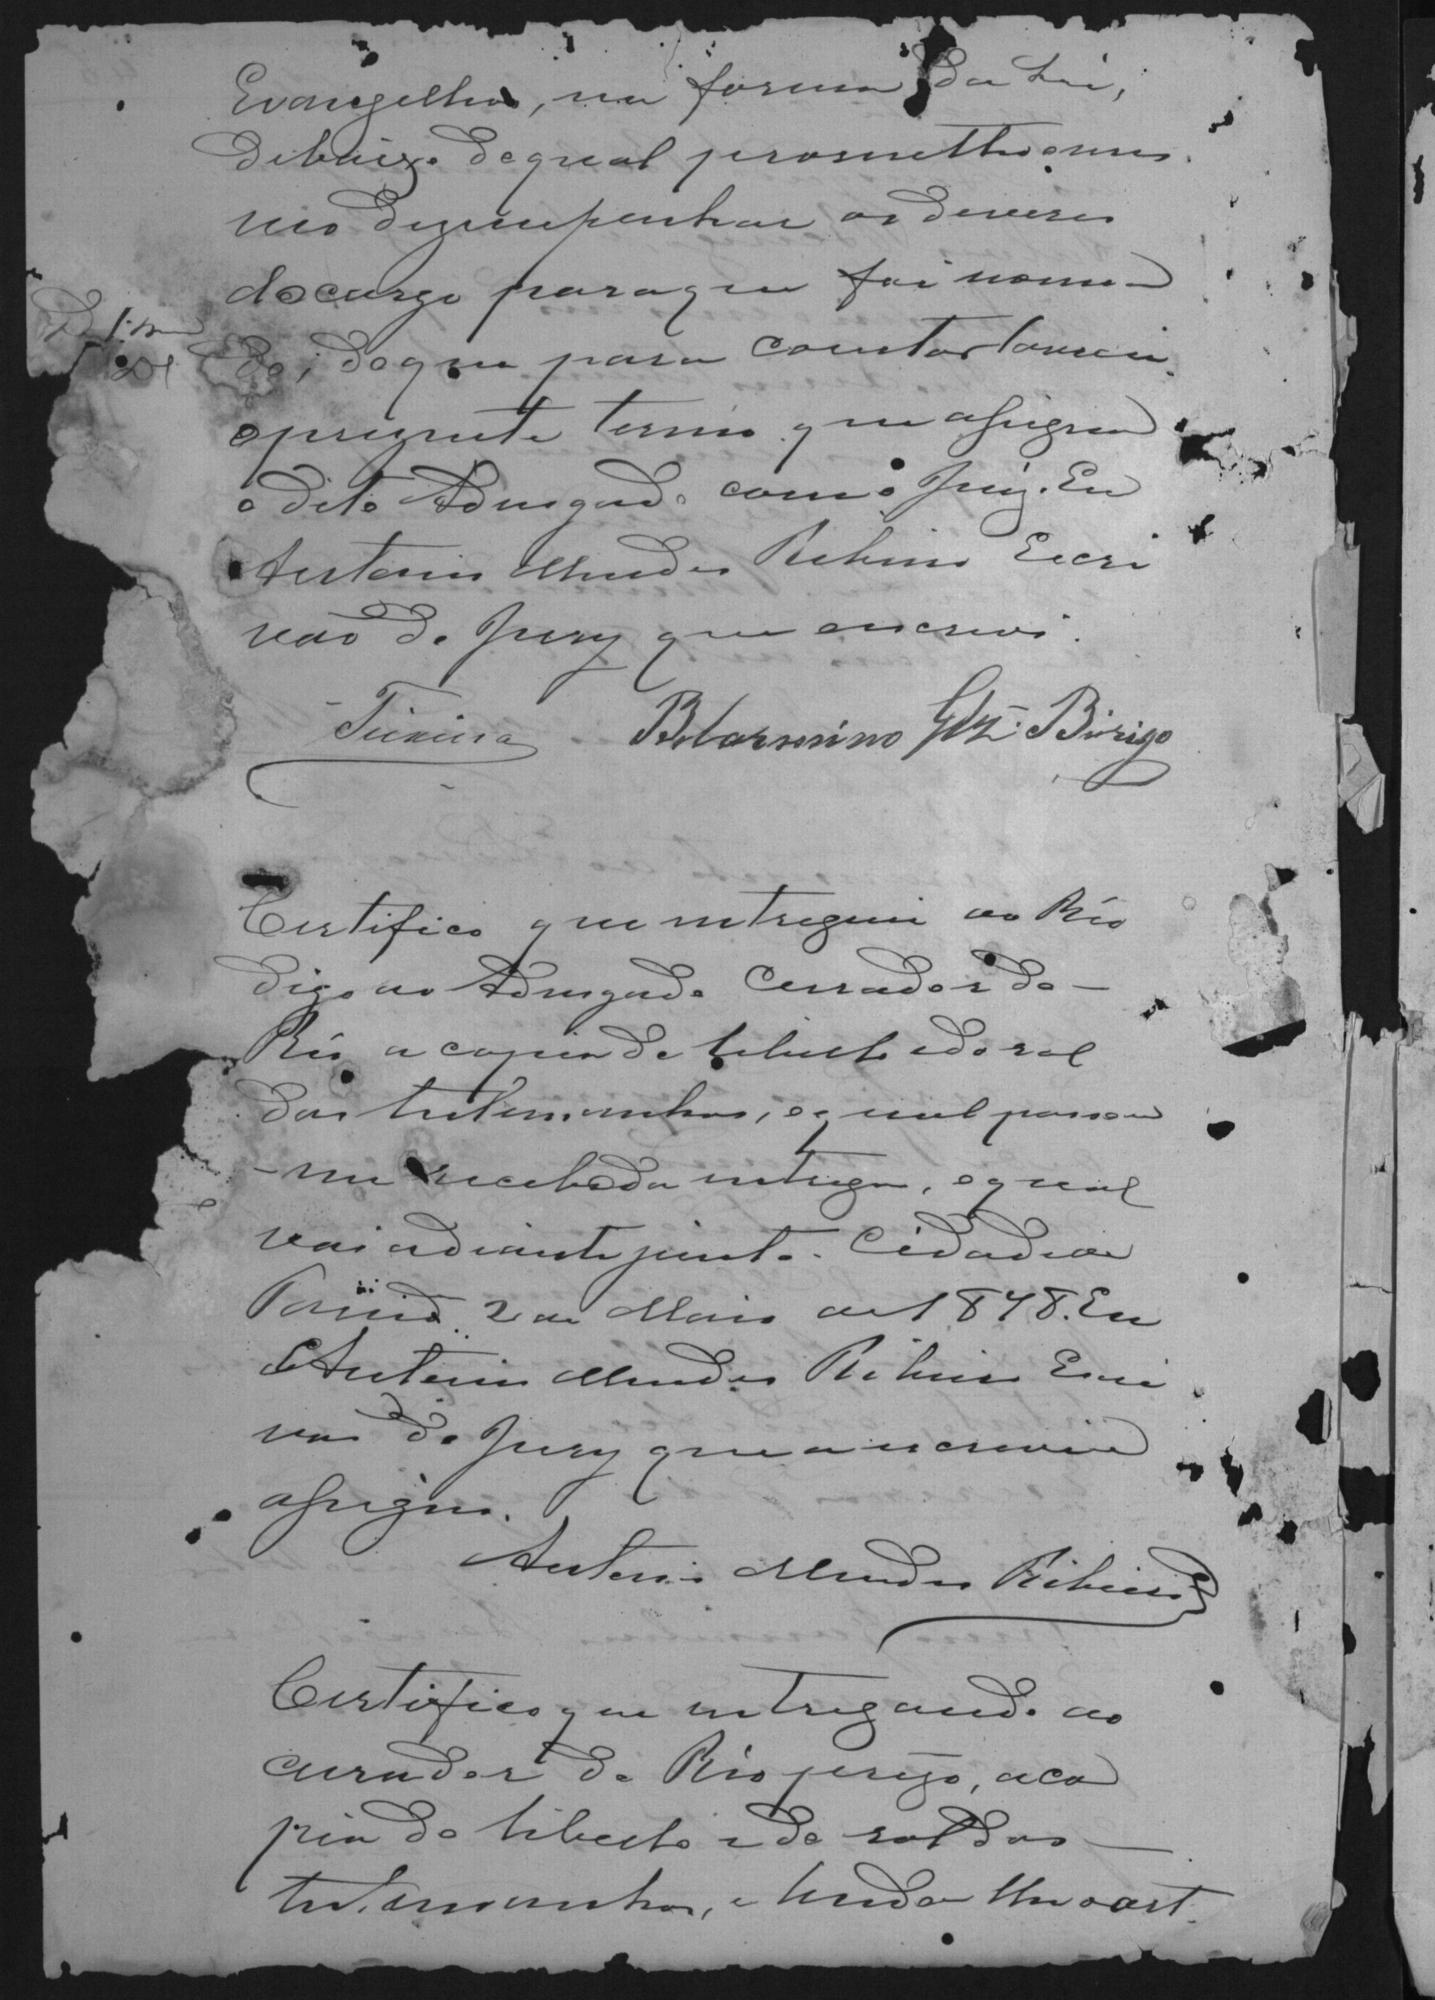 Evangelhos, na forma da Lei,
debaixo do qual prometteo em
desempenhar os deveres
do cargo para que foi nomea
do; do que para constar lavrei
o prezente termo que assigna
o dito Advogado com o Juiz. Eu
Antonio Mendes Ribeiro Escri
vaõ do Jury que escrevi.
Teixeira Belarmino Glz. Bórigo
Certifico que entreguei ao Réo
digo ao Advogado Curador do
Réo a copia do libello e do rol
das testemunhas, o qual passou
-me recebo da entrega, o qual
vai adiante junto. Cidade
2 de Maio de 1878. Eu
Antonio Mendes Ribeiro Escri
vaõ do Jury que a escrevi e
assigno.
Antonio Mendes Ribeiro
Certifico que entregando ao
curador do Réo prezo, a co
pia do libello e do rol das
testemunhas, e lendo lhe o art.